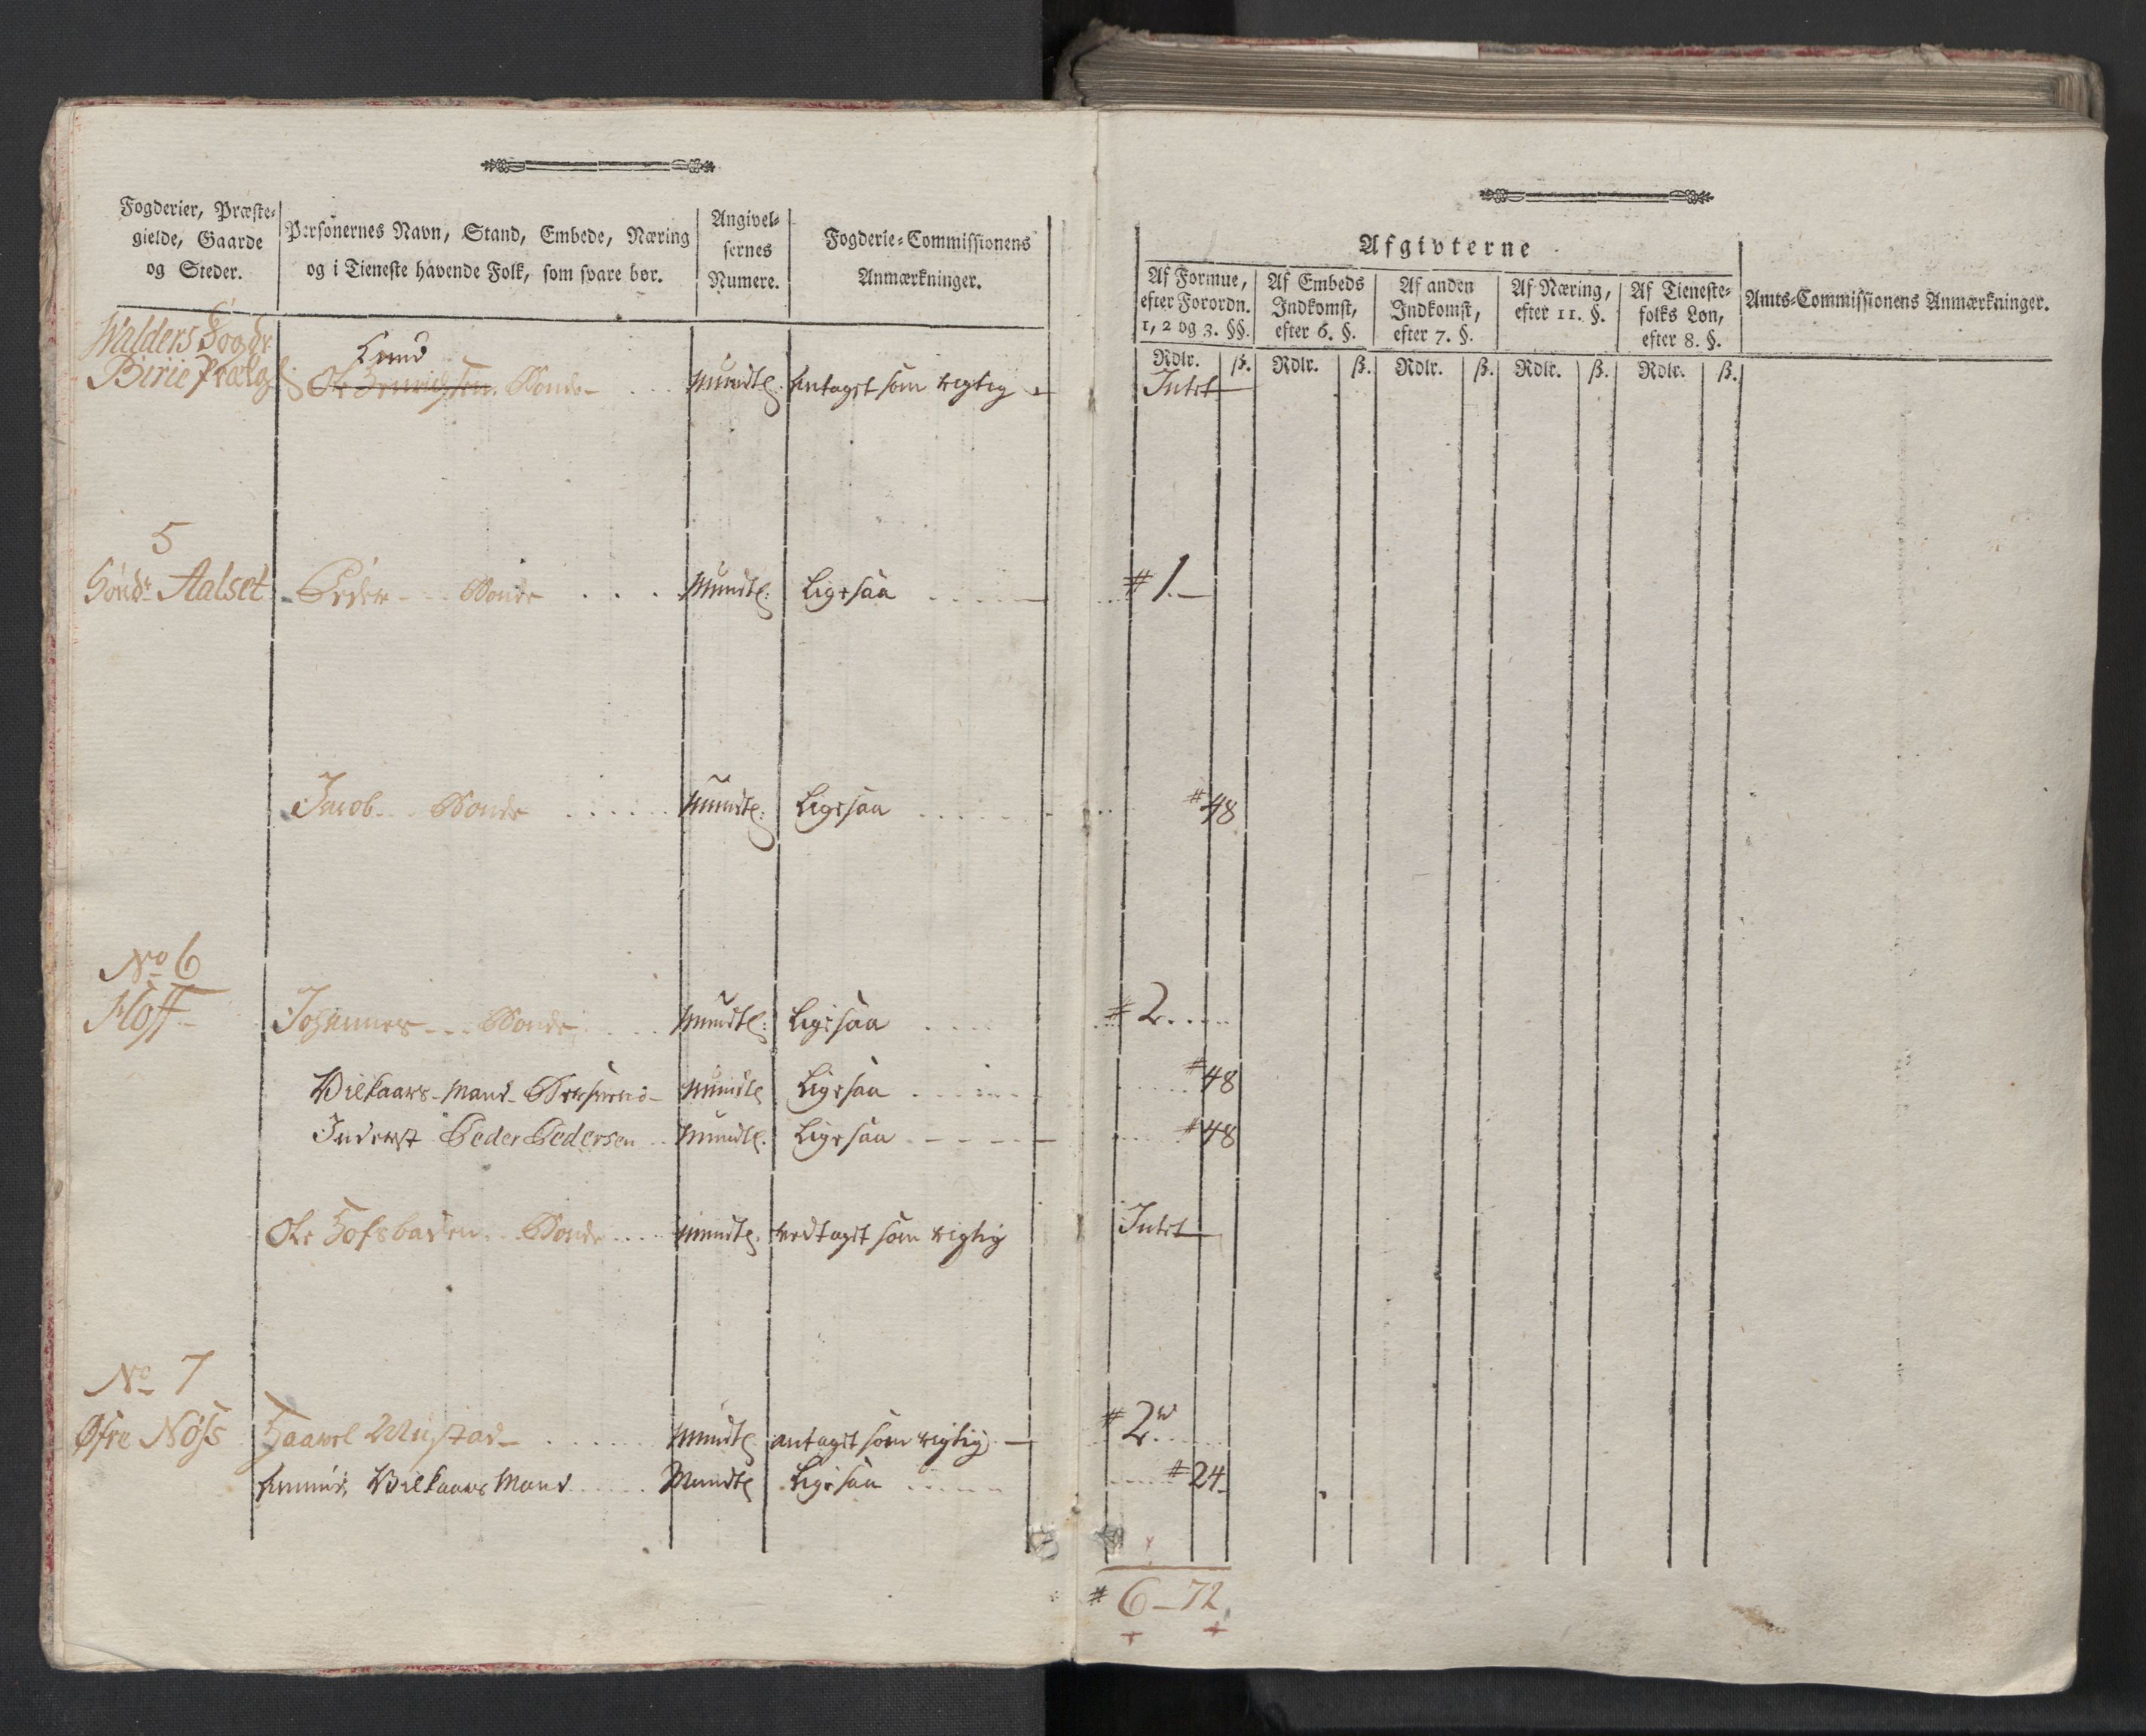 Fogderier, Præste-
gielde, Gaarde
og Steder.
Personernes Navn, Stand, Embede, Næring
og i Tieneste havende Folk, som svare bør.
Angivel-
sernes
Numere.
Fogderie-Commissionens
Anmærkninger.
Walders Fogdr
Birie Prælg:
Lund
Ole Bonde Mundtl: Antaget som rigtig
5
Søndr Aalset Peder Bonde Mundtl: Ligesaa
Jacob Bonde Mundtl: Ligesaa
No 6
Hoff Johannes Bonde Mundtl: Ligesaa
Vilkaars-Mand Mundtl Ligesaa
Inderst Peder Pedersen Mundtl: Ligesaa
Ole Hofsbakken Bonde Mundtl: vedtaget som rigtig
No 7
Øfre Nøss Haavel Mustad Mundtl antaget som rigtig
Amund, Vilkaars Mand Mundtl Ligesaa
Afgivterne
Af Formue,
efter Forordn.
1, 2 og 3. §§.
Af Embeds
Indkomst,
efter 6. §.
Af anden
Indkomst,
efter 7. §.
Af Næring,
efter 11. §.
Af Tieneste-
folks Løn,
efter 8. §.
Amts-Commissionens Anmærkninger.
Rdlr. ß. Rdlr. ß. Rdlr. ß. Rdlr. ß. Rdlr. ß.
Intet
# 1.
# 48
# 2
# 48
# 48
Intet
# 2
# 24
# 6 - 72